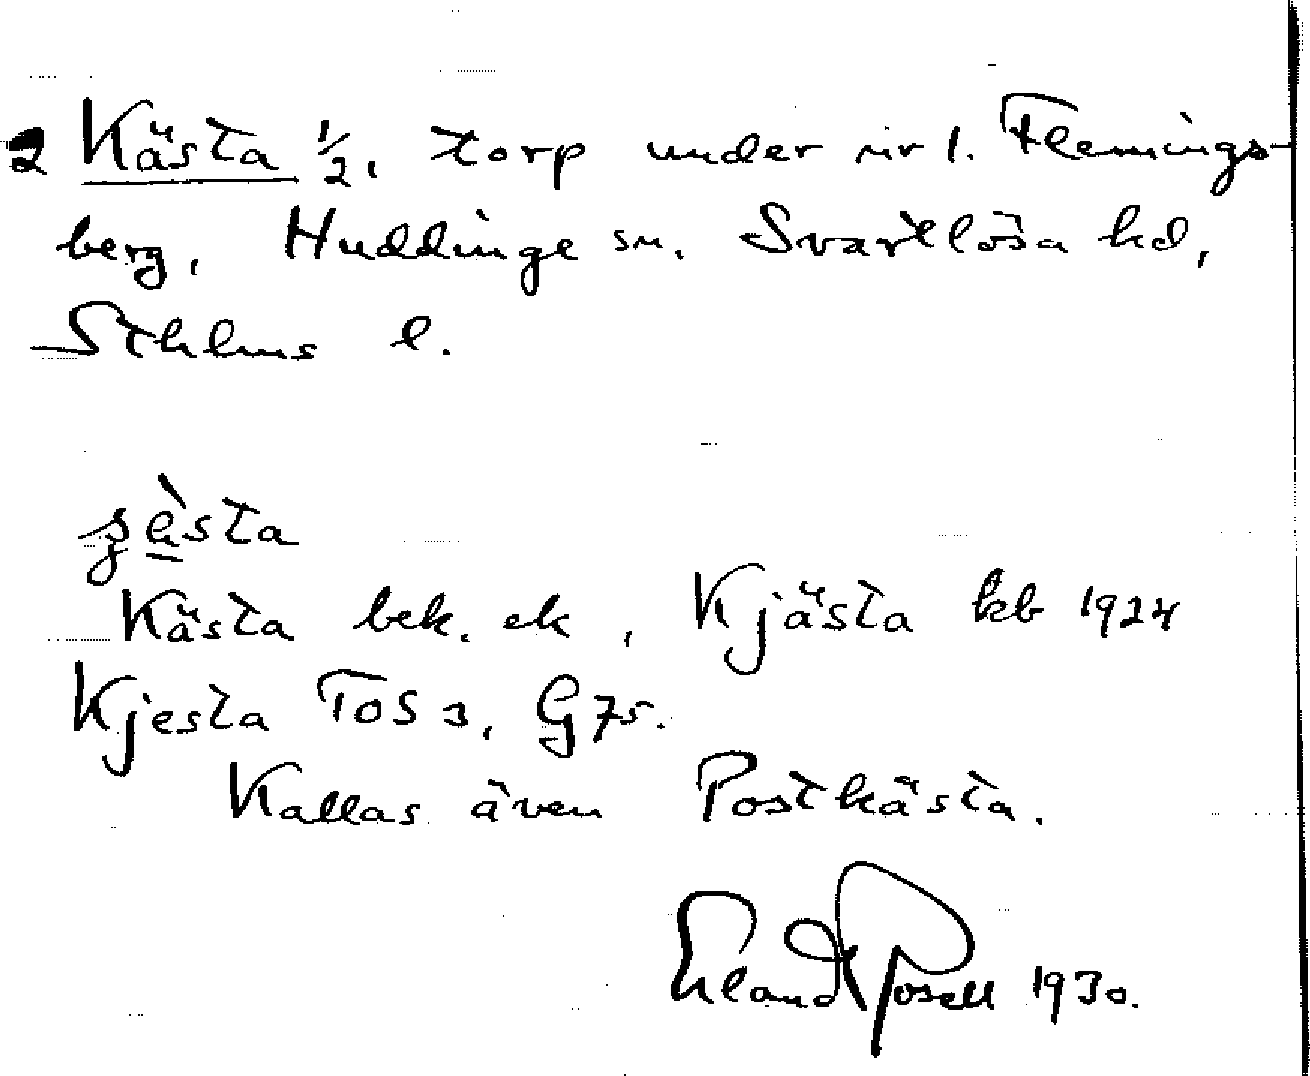 2 Kästa 1/2, torp under nr 1. Flemings-
berg, Huddinge sn. Svartlösa hd,
Sthlms l.
Kästa bek. ek, Kjästa kb 1924
Kjesta ToS 3, G 75.
Kallas även Postkästa.
Erland Rosell 1930.